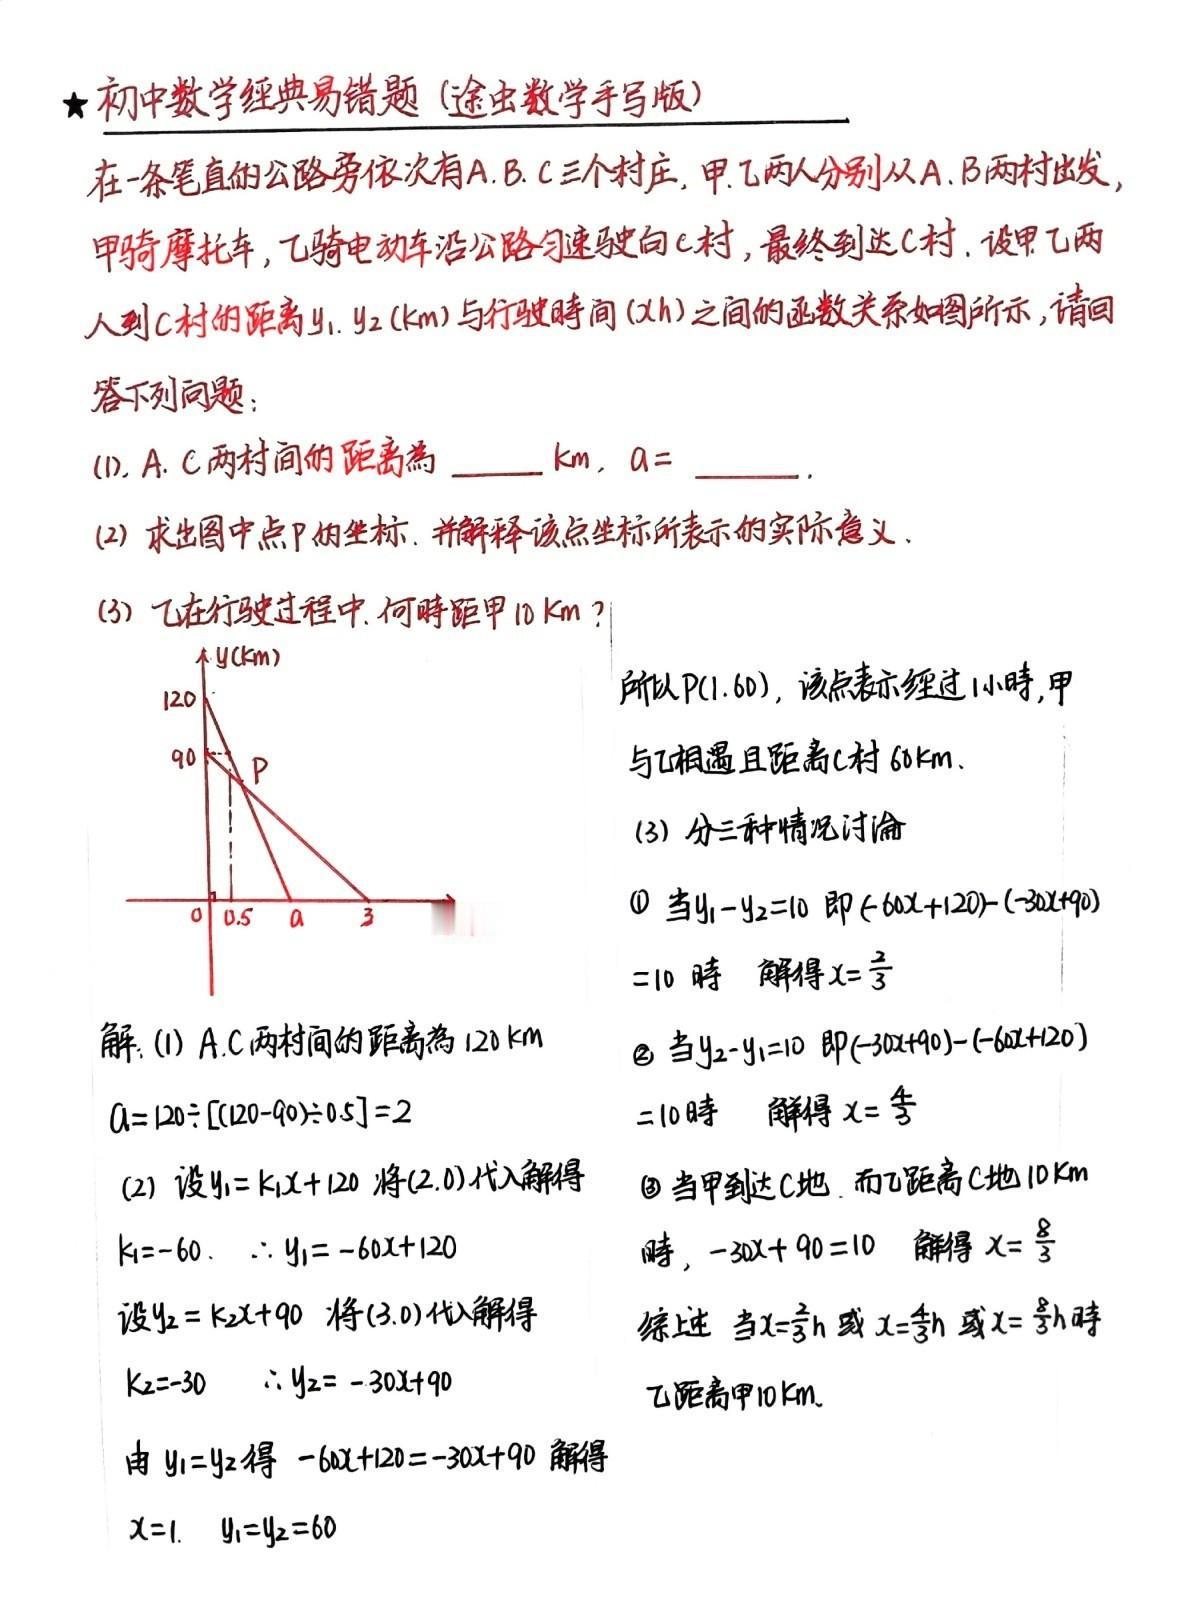 ★ 初中数学經典易错题（途虫数学手写版）
在一条笔直的公路旁依次有A.B.C三个村庄,甲.乙两人分别从A.B两村出发,
甲骑摩托车,乙骑电动车沿公路匀速驶向C村,最终到达C村.设甲.乙两
人到C村的距离y₁.y₂(km)与行驶時间(xh)之间的函数关系如图所示,请回
答下列问题:
(1).A.C两村间的距离為 ____ km, a= ____ .
(2) 求出图中点P的坐标.并解释该点坐标所表示的实际意义.
(3) 乙在行驶过程中.何時距甲10km?
y(km)
120
90
P
0 0.5 a 3
解:(1) A.C两村间的距离為120km
a=120÷[(120-90)÷0.5]=2
(2) 设y₁=k₁x+120 将(2.0)代入解得
k₁=-60. ∴y₁=-60x+120
设y₂=k₂x+90 将(3.0)代入解得
k₂=-30 ∴y₂=-30x+90
由 y₁=y₂得 -60x+120=-30x+90 解得
x=1. y₁=y₂=60
所以P(1.60),该点表示經过1小時,甲
与乙相遇且距离C村60km.
(3) 分三种情况讨論
① 当y₁-y₂=10 即(-60x+120)-(-30x+90)
=10 時 解得x=2/3
② 当y₂-y₁=10 即(-30x+90)-(-60x+120)
=10時 解得 x=4/3
③ 当甲到达C地.而乙距离C地10km
時,-30x+90=10 解得 x=8/3
综上述 当x=2/3h 或 x=4/3h 或x=8/3h時
乙距离甲10km.